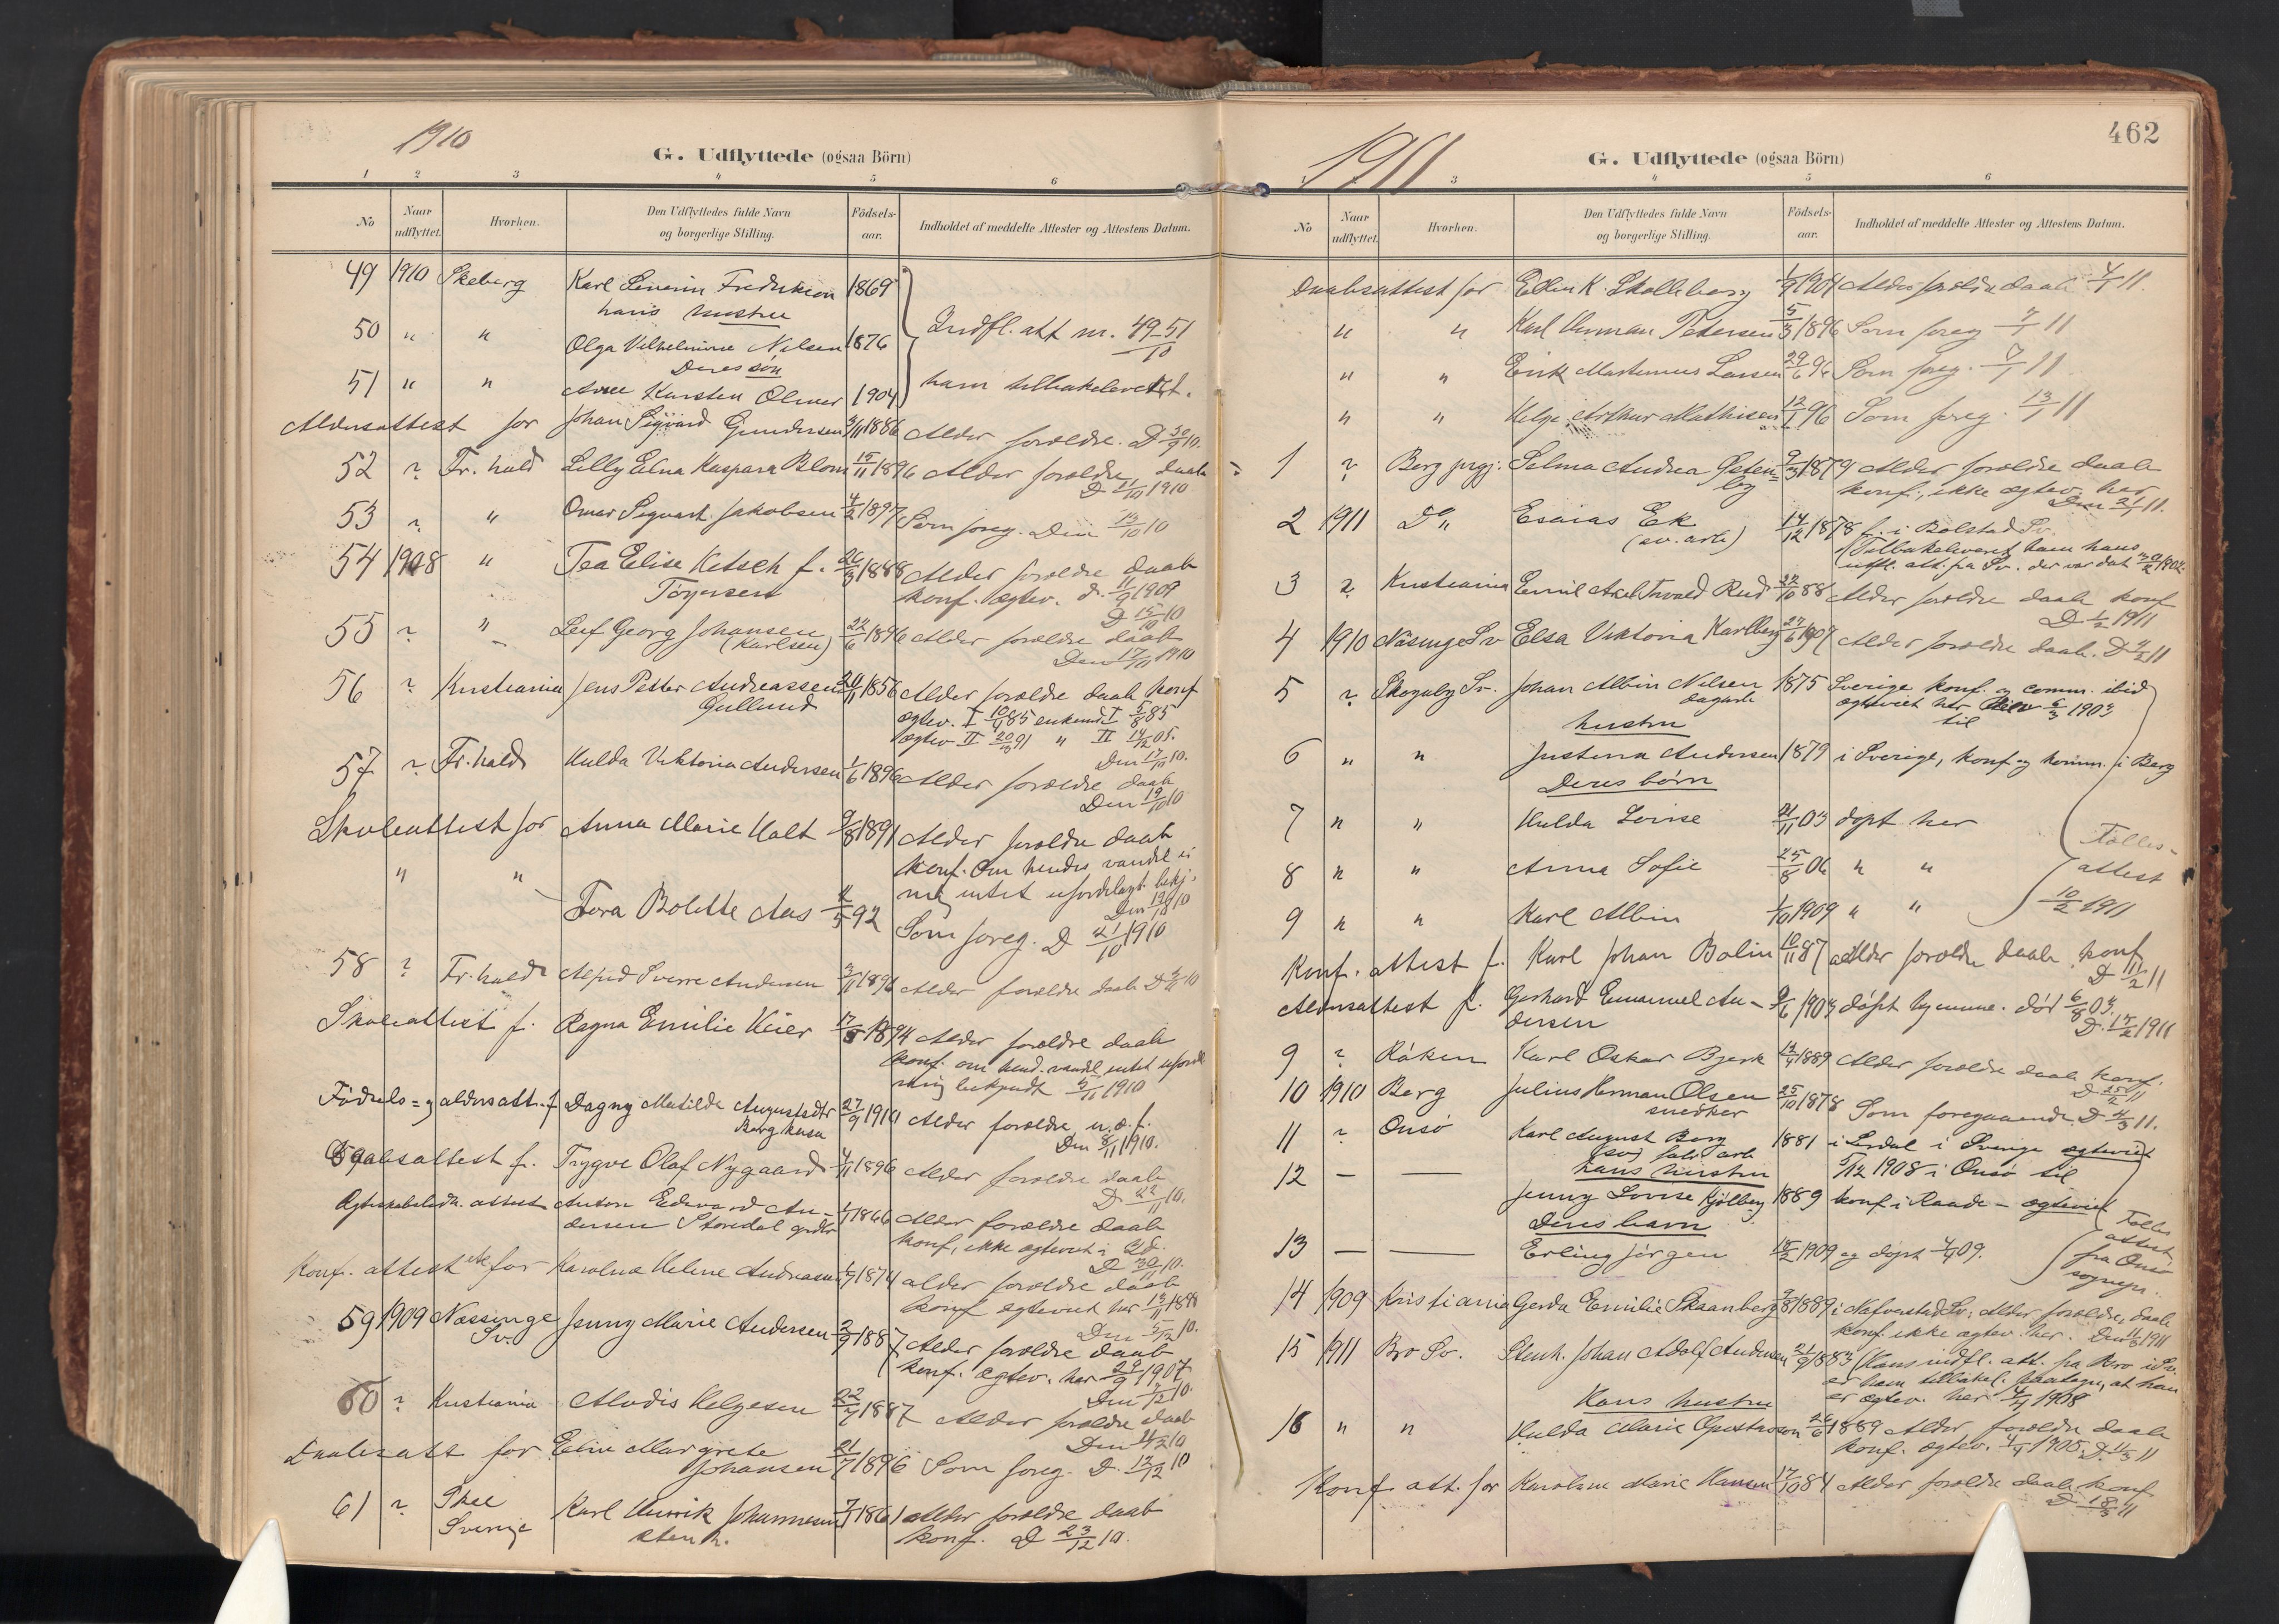 1910
G. Udflyttede (ogsaa Börn)
1 2 3 4 5 6
No
Naar udflyttet.
Hvorhen.
Den Udflyttedes fulde Navn og borgerlige Stilling.
Födsels-aar.
Indholdet af meddelte Attester og Attestens Datum.
49 1910 Skeberg Karl Severin Fredriksen 1869
hans hustru
50 " " Olga Vilhelmine Nilsen 1876 Indfl. att nr. 49-51/10
Deres søn
51 " " Karsten Olmer 1904 ham tilbakelevert.
Aldersattest for Johan Sigvard Gundersen 1886 Alder forældre. D 30/9 10.
52 ? Fr.hald Lilly Elna Kaspara Blom 15/11 1896 Alder forældre, daab
D 11/10 1910
53 ? " Omar Sigvart Jakobsen 4/2 1897 Som foreg. Den 13/10 10
54 1908 " Tea Elise Ketsch f. 26/3 1888 Alder forældre daab
Torgersen konf. ægtev. d. 11/9 1909
D 15/10 10
55 ? " Leif Georg Johansen 22/6 1896 Alder forældre daab
(Karlsen) Den 17/10 1910
56 ? Kristiania Jens Petter Andreassen 24/11 1856 Alder forældre daab konf
Gullund ægtev. I 10/4 85 enkem. I 5/8 85
ægtev II 20/10 91 " II 14/12 05.
Den 17/10 10.
57 ? Fr.hald Hulda Viktoria Andersen 1/6 1896 Alder forældre daab
Den 19/10 10
Skoleattest for Anna Marie Holt 9/8 1891 Alder forældre daab
konf. Om hendes vandel er
mig intet ufordelagt. bekj.
Den 19/10 10
" " Tora Bolette Aas 2/5 92 Som foreg. D 21/10 1910
58 ? Fr.hald Alfred Sverre Andersen 3/11 1896 Alder forældre daab D 3/11 10
Skoleattest f. Ragna Emilie Heier 17/5 1894 Alder forældre daab
konf. om hend. vandel intet ufordel
mig bekjendt 5/11 1910
Fødsels= og aldersatt. f Dagny Matilde Augustadtr 27/9 1910 Alder forældre u. æ. f.
Berg husu Den 8/11 1910.
Daabsattest fr. Trygve Olaf Nygaard 4/11 1896 Alder forældre daab
D 22/11 10.
attest Anton Edevard An- 1866 Alder forældre daab
dersen Storedal grdbr konf, ikke ægteviet i
D 30/11 10.
Konf. attest etc for Karoline Helene Andreassen 1/9 1874 alder forældre daab
konf ægteviet her 13/11 1898
Den 5/12 10.
59 1909 Næssinge Jenny Marie Andersen 2/9 1887 Alder forældre daab
Sv. konf. ægtev. her 29/9 1907
Den 7/12 10.
60 ? Kristiania Alvdis Helgesen 22/7 1887 Alder forældre daab
Den 14/12 10
Daabsatt for Elin Margrete 21/7 1896 Som foreg. D. 12/12 10
Johansen
61 ? Skee Karl Henrik Johannesen 7/1 1861 Alder forældre daab
Sverige stenh. konf. D 23/12 10.
462
1911
G. Udflyttede (ogsaa Börn)
3 4 5 6
No
Naar udflyttet.
Hvorhen.
Den Udflyttedes fulde Navn og borgerlige Stilling.
Födsels-aar.
Indholdet af meddelte Attester og Attestens Datum.
Daabsattest for Ellen K. Skolleborg 1/9 1904 Alder forældre daab 4/1 11.
" " Karl Herman Petersen 5/3 1896 Som foreg 7/1 11
" " Erik Martinius Larsen 29/6 96 Som foreg. 7/1 11
" " Helge Arthur Mathisen 12/1 96 Som foreg. 13/1 11
1 ? Berg prgj. Selma Andrea Østen= 9/3 1879 Alder forældre daab
konf., ikke ægtev. her
Den 21/1 11.
2 1911 Do " Esaias Ek 14/12 1878 f. i Bolstad Sv.
(sv. arb) Tilbakeleveret ham hans
utfl. att. fra Sv. der var dat
3 ? Kristiania Emil Axel Trvald Rud 22/10 88 Alder forældre daab konf
D 1/2 1911
4 1910 Näsinge Sv Elsa Viktoria Karlberg 27/6 1907 Alder forældre daab. D 4/2 11
5 ? Skogaby Sv. Johan Albin Nilsen 1875 Sverige konf. og comm. ibid
dagarb ægteviet her 6/3 1903
hustru til
6 " " Justina Andersen 1879 i Sverige, konf og komm. i Berg
Deres børn
7 " " Hulda Lovise 21/11 03 døpt her
Fælles-
8 " " Anna Sofie 25/8 06 " "
attest
9 " " Karl Albin 1/10 1909 " "
10/2 1911
Konf. attest f. Karl Johan Bolin 10/11 87 alder forældre daab konf
D 11/2 11
Aldersattest f. Gerhard Emanuel An- 9/6 1903 døpt hjemme. død 6/8 03.
dersen D. 17/2 1911
9 ? Råken Karl Oskar Bjerk 12/4 1889 Alder forældre daab konf.
D 25/2 11
10 1910 Berg Julius Herman Olsen 25/10 1878 Som foregaaende. D 4/3 11.
snedker
11 ? Onsø Karl August Berg 1881 i Lerdal i Sverige ægteviet
fabr. arb 5/12 1908 i Onsø til
12 — — hans hustru
Jenny Lovise Kjölberg 1889 konf i Raade - ægteviet
Deres barn
13 — — Erling Jørgen 15/2 1909 og døpt 4/4 09.
Fælles
attest
fra Onsø
sognepr.
14 1909 Kristiania Gerda Emilie Skaanberg 3/8 1889 i Nafverstad Sv: Alder forældre, daab
konf. ikke ægtev. her. Den 11/3 1911
15 1911 Bro Sv. Stenh. Johan Adolf Andersen 21/9 1883 Hans indfl. att. fra Bro i Sv.
er ham tilbakel. paategn. at han
er ægtev. her 4/4 1908
Hans hustru
16 " " Hulda Marie 26/6 1889 Alder forældre daab
konf. ægtev. 4/4 1908. D. 11/3 11
Konf att. for Karoline Marie Hansen 17/10 84 Alder forældre daab konf
D 18/3 11